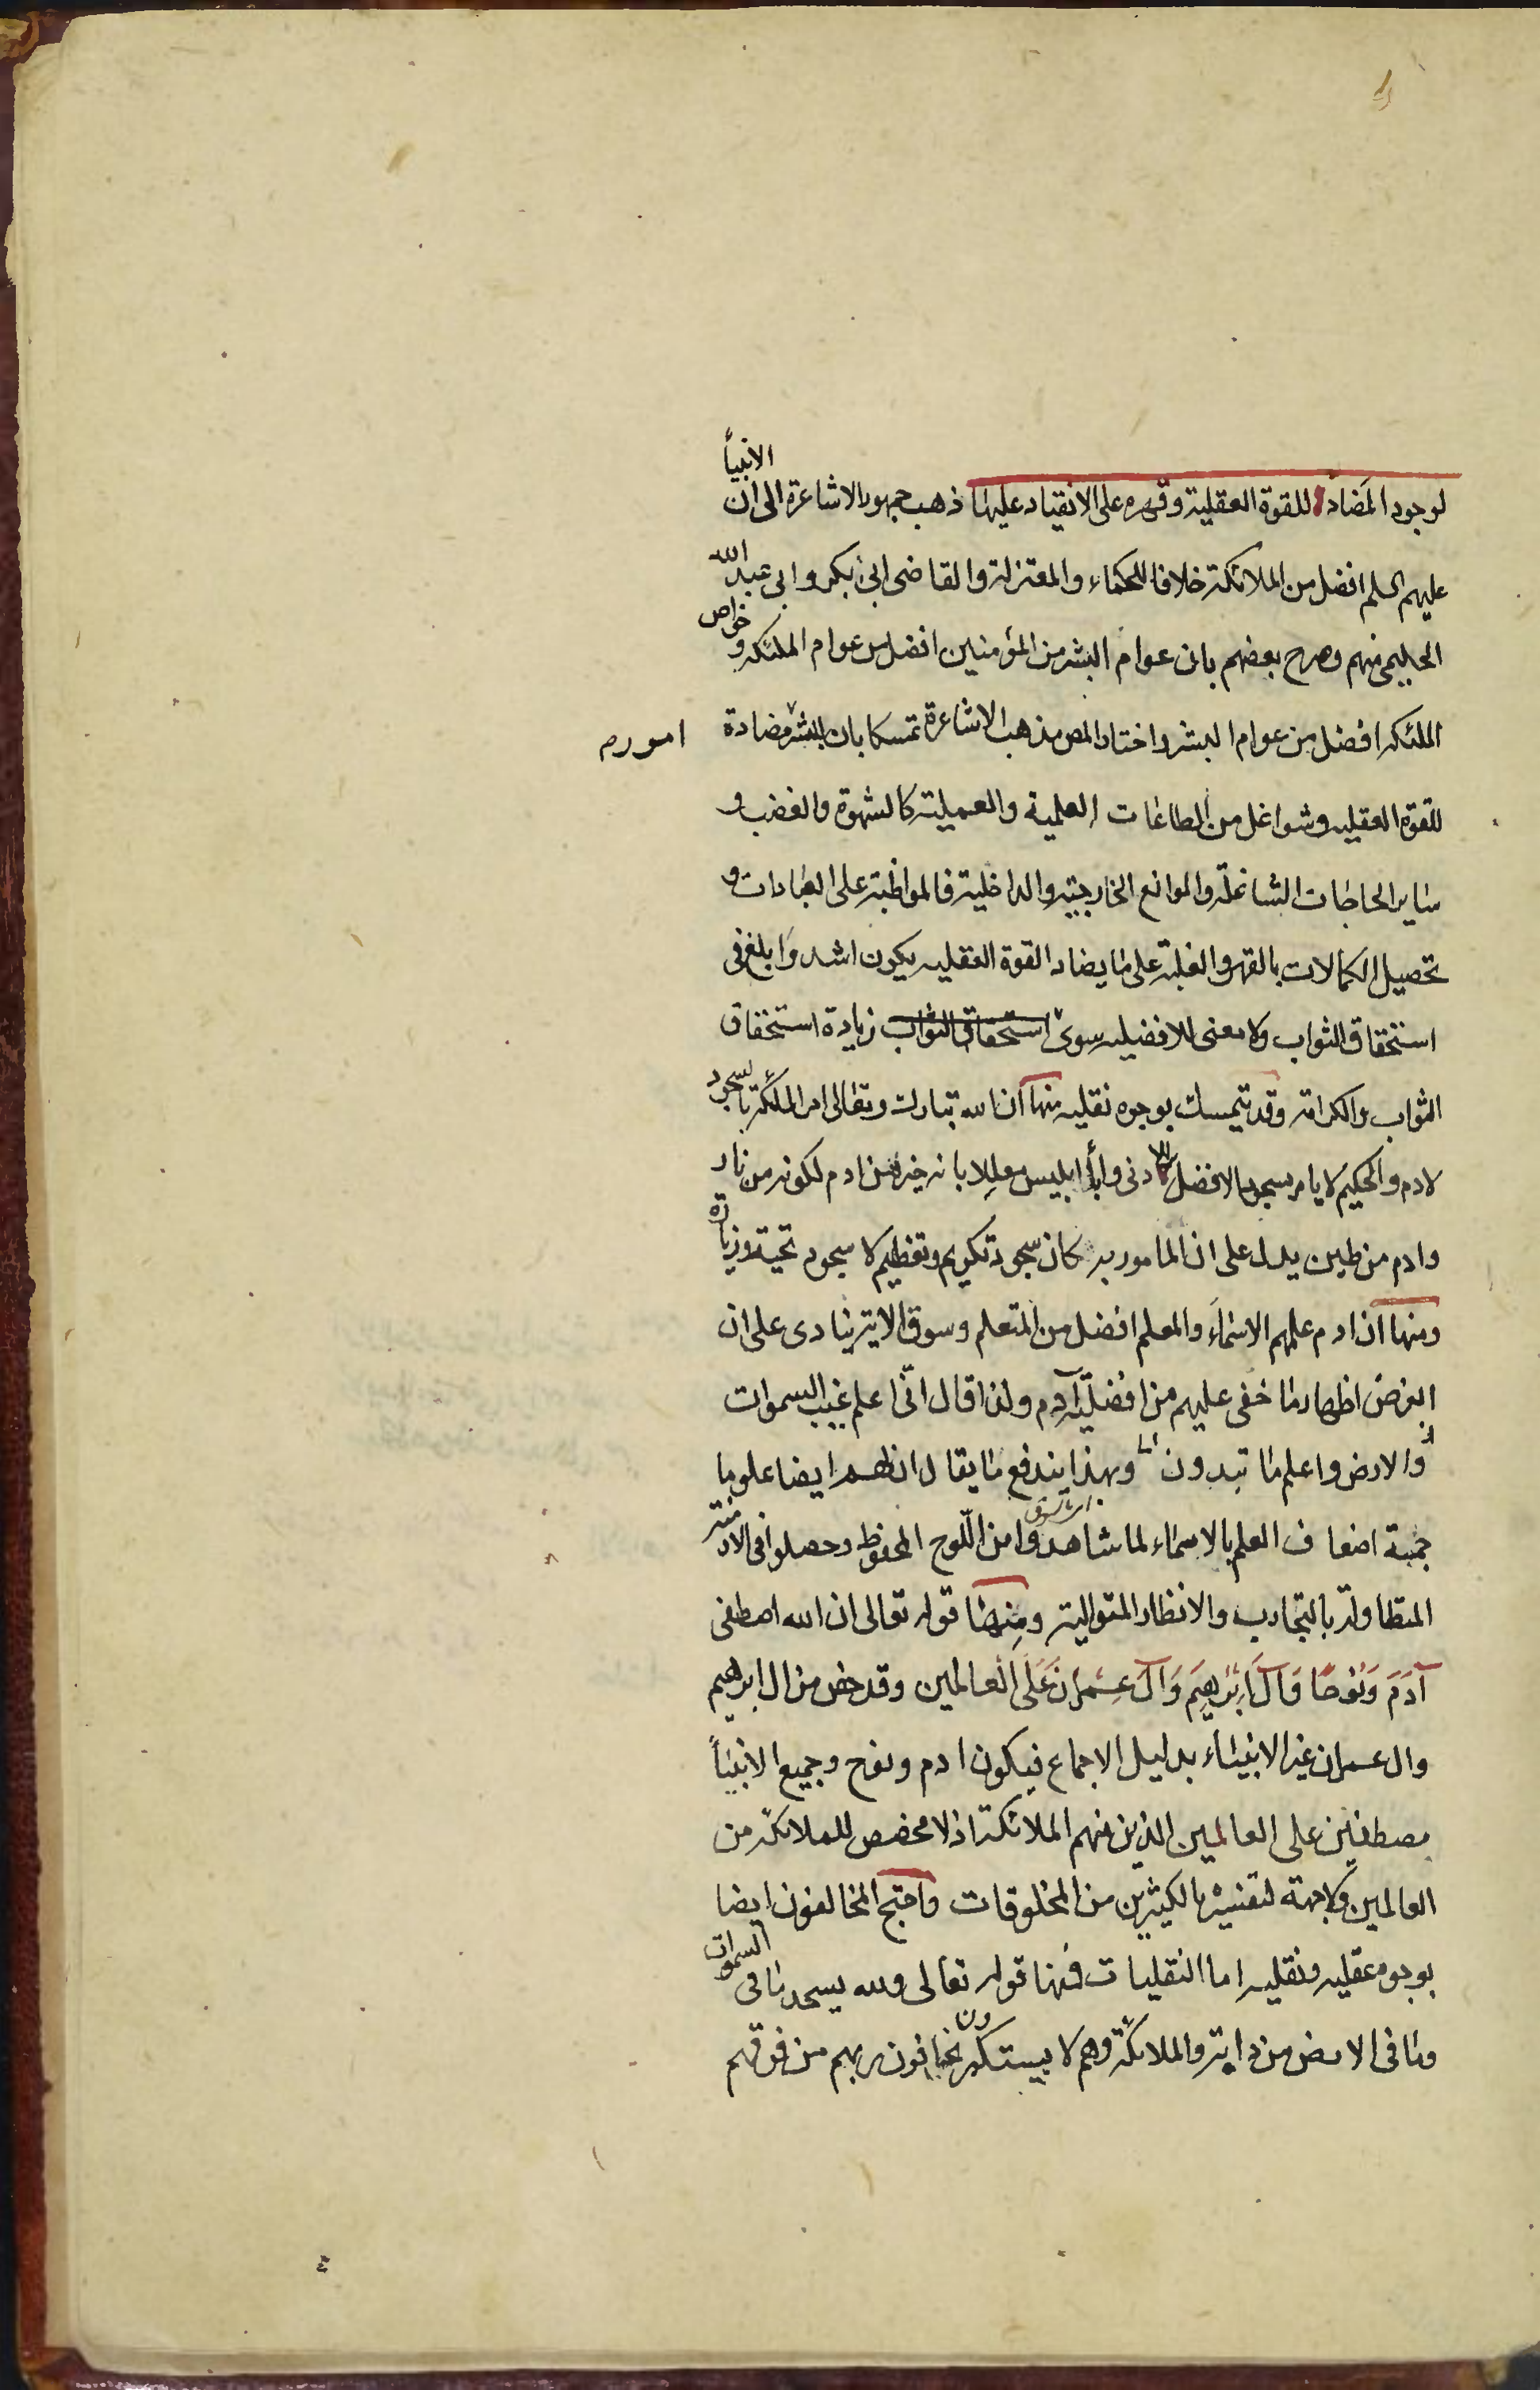 لوجود المضاد للقوة العقلية وقهره على الانقياد عليها ذهب جمهور الاشاعرة الى ان الانبيأ
عليهم السلم افضل من الملائكة خلافا للحكماء والمعتزلة والقاضى ابى بكر وابى عبد الله
الحليمى منهم وصرح بعضهم بان عوام البشر من المؤمنين افضل من عوام الملئكه وخواص
الملئكه افضل من عوام البشر واختار المص مذهب الاشاعرة تمسكا بان للبشر مضادة
امور
للقوة العقليه وشواغل من الطاعات العلمية والعملية كالشهوة والغضب و
ساير الحاجات الشاغلة والموانع الخارجية والداخلية فالمواظبة على العبادات و
تحصيل الكمالات بالقهر والغلبة على ما يضاد القوة العقليه يكون اشد وابلغ فى
استحقاق الثواب ولا معنى للافضليه سوى استحقاق الثواب زيادة استحقاق
الثواب والكرامة وقد يتمسك بوجوه نقليه منها ان الله تبارك وتعالى امر الملئكة بالسجود
لادم والحكيم لا يامر بسجود الافضل للادنى وأبا ابليس معللا بانه خير من ادم لكونه من نار
وادم من طين يدل على ان المامور به كان سجود تكريم وتعظيم لا سجود تحية وزيارة
ومنها ان ادم علمهم الاسماء والمعلم افضل من المتعلم وسوق الاية ينادى على ان
الغرض اظهار ما خفى عليهم من افضلية آدم ولذا قال انى اعلم غيب السموات
والارض واعلم ما تبدون وبهذا يندفع ما يقال ان لهم ايضا علوما
جمة اضعاف العلم بالاسماء لما شاهدوا من اللوح المحفوظ وحصلوا فى الازمنة
المتطاولة بالتجارب والانظار المتوالية ومنها قوله تعالى ان الله اصطفى
آدَمَ وَنُوحًا وَآلَ اِبْرٰهِيمَ وَآلَ عِمْرانَ عَلَى الْعالمين وقد خص من ال ابرهيم
وال عمران غير الانبياء بدليل الاجماع فيكون ادم ونوح وجميع الانبيأ
مصطفين على العالمين الذين منهم الملائكة اذ لا مخصص للملائكة من
العالمين ولا جهة لتفسيره بالكثيرين من المخلوقات واحتج المخالفون ايضا
بوجوه عقليه ونقليه اما النقليات فمنها قوله تعالى ولله يسجد ما فى السموات
وما فى الارض من دابة والملائكة وهم لا يستكبرون يخافون ربهم من فوقهم